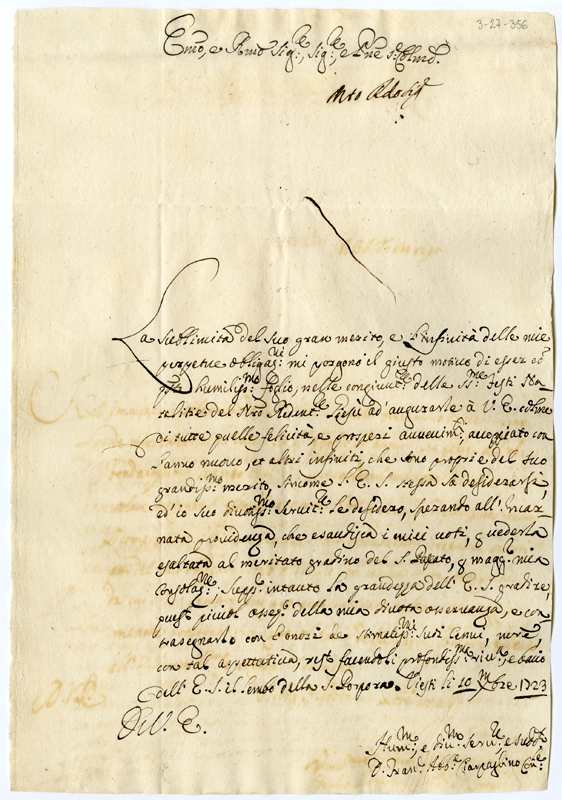 3-27-356
Emo, e Rmo Sig:re, Sig:re, e Pne s: Colmo.
La Sublimità del suo gran merito, e l'infinità delle mie
perpetue obligaz:ni mi porgono il giusto motivo di esser co
humiliss:mo foglio, nelle congiunt:re della SS:me Feste Na-
talitie del Nro Redent:re Giesù ad'augurarle à V. E. colme
di tutte quelle felicità, e prosperi avvenim:ti, accoppiato con
l'anno nuovo, et altri infiniti, che sono proprie del suo
grandiss:mo merito, sincome l'E. S. stessa sà desiderarsi,
ed'io suo divotiss:mo Servit:re le desidero, sperando all'Incar-
nata providenza, che esaudisca i miei voti, p vederla
esaltata al meritato gradino del S. Papato, p magg:re mia
consolaz:ne; Supp: intanto la grandezza dell'E. S. gradire,
questi piccoli osseq: della mia divota osservanza, e con-
trasegnarlo con l'onori de stimatiss:mi suoi cenni, mentre
con tal aspettativa, resto facendoli profondiss:me river:, e bacio
dell'E. S. il lembo della S. Porpora. li 10 Xbre 1723
Di V. E.
Hum:mo e div:mo Serv:re e sudd:to
D. Fran:co